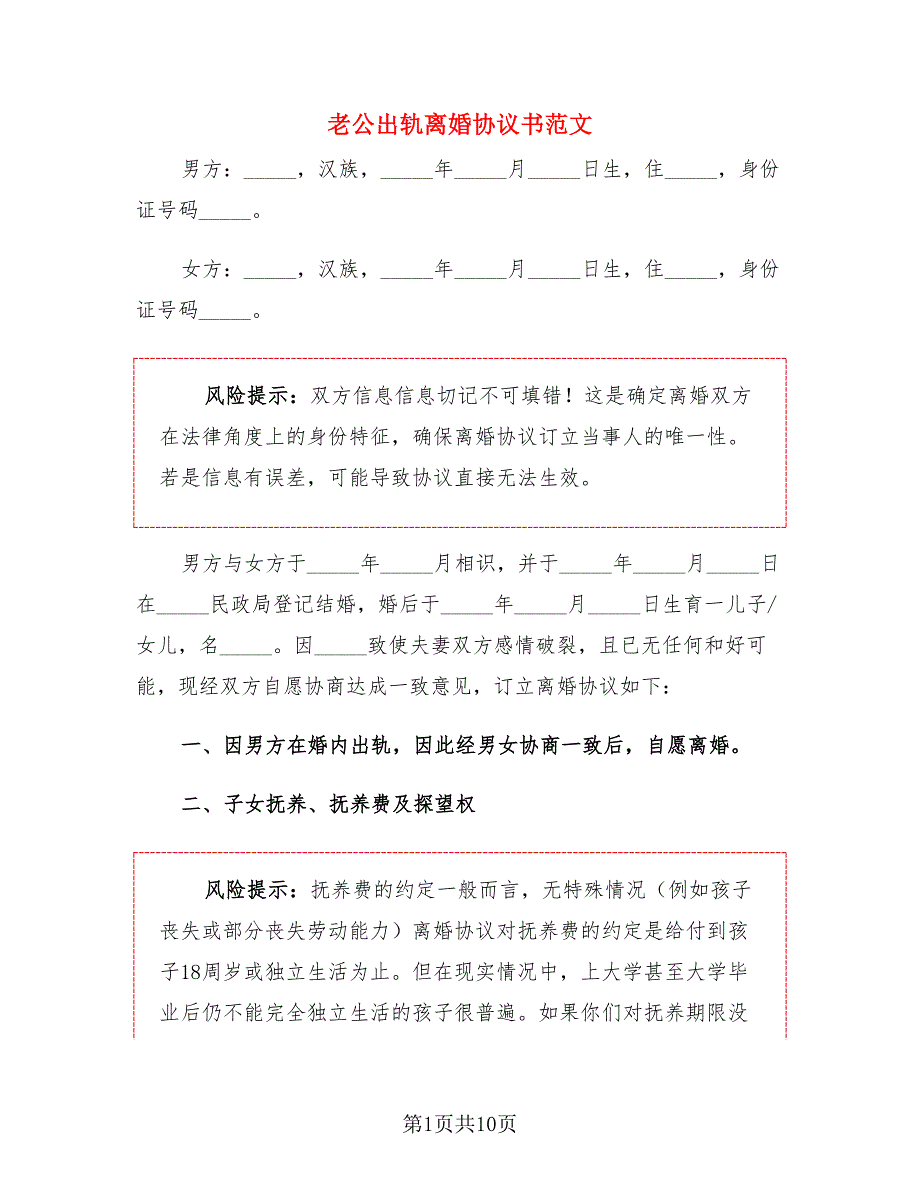 老公出轨离婚协议书范文
男方：_____，汉族，_____年_____月_____日生，住_____，身份
证号码_____。
女方：_____，汉族，_____年_____月_____日生，住_____，身份
证号码_____。
风险提示：双方信息信息切记不可填错！这是确定离婚双方
在法律角度上的身份特征，确保离婚协议订立当事人的唯一性。
若是信息有误差，可能导致协议直接无法生效。
男方与女方于_____年_____月相识，并于_____年_____月_____日
在_____民政局登记结婚，婚后于_____年_____月_____日生育一儿子/
女儿，名_____。因_____致使夫妻双方感情破裂，且已无任何和好可
能，现经双方自愿协商达成一致意见，订立离婚协议如下：
一、因男方在婚内出轨，因此经男女协商一致后，自愿离婚。
二、子女抚养、抚养费及探望权
风险提示：抚养费的约定一般而言，无特殊情况（例如孩子
丧失或部分丧失劳动能力）离婚协议对抚养费的约定是给付到孩
子18周岁或独立生活为止。但在现实情况中，上大学甚至大学毕
业后仍不能完全独立生活的孩子很普遍。如果你们对抚养期限没
第1页共10页